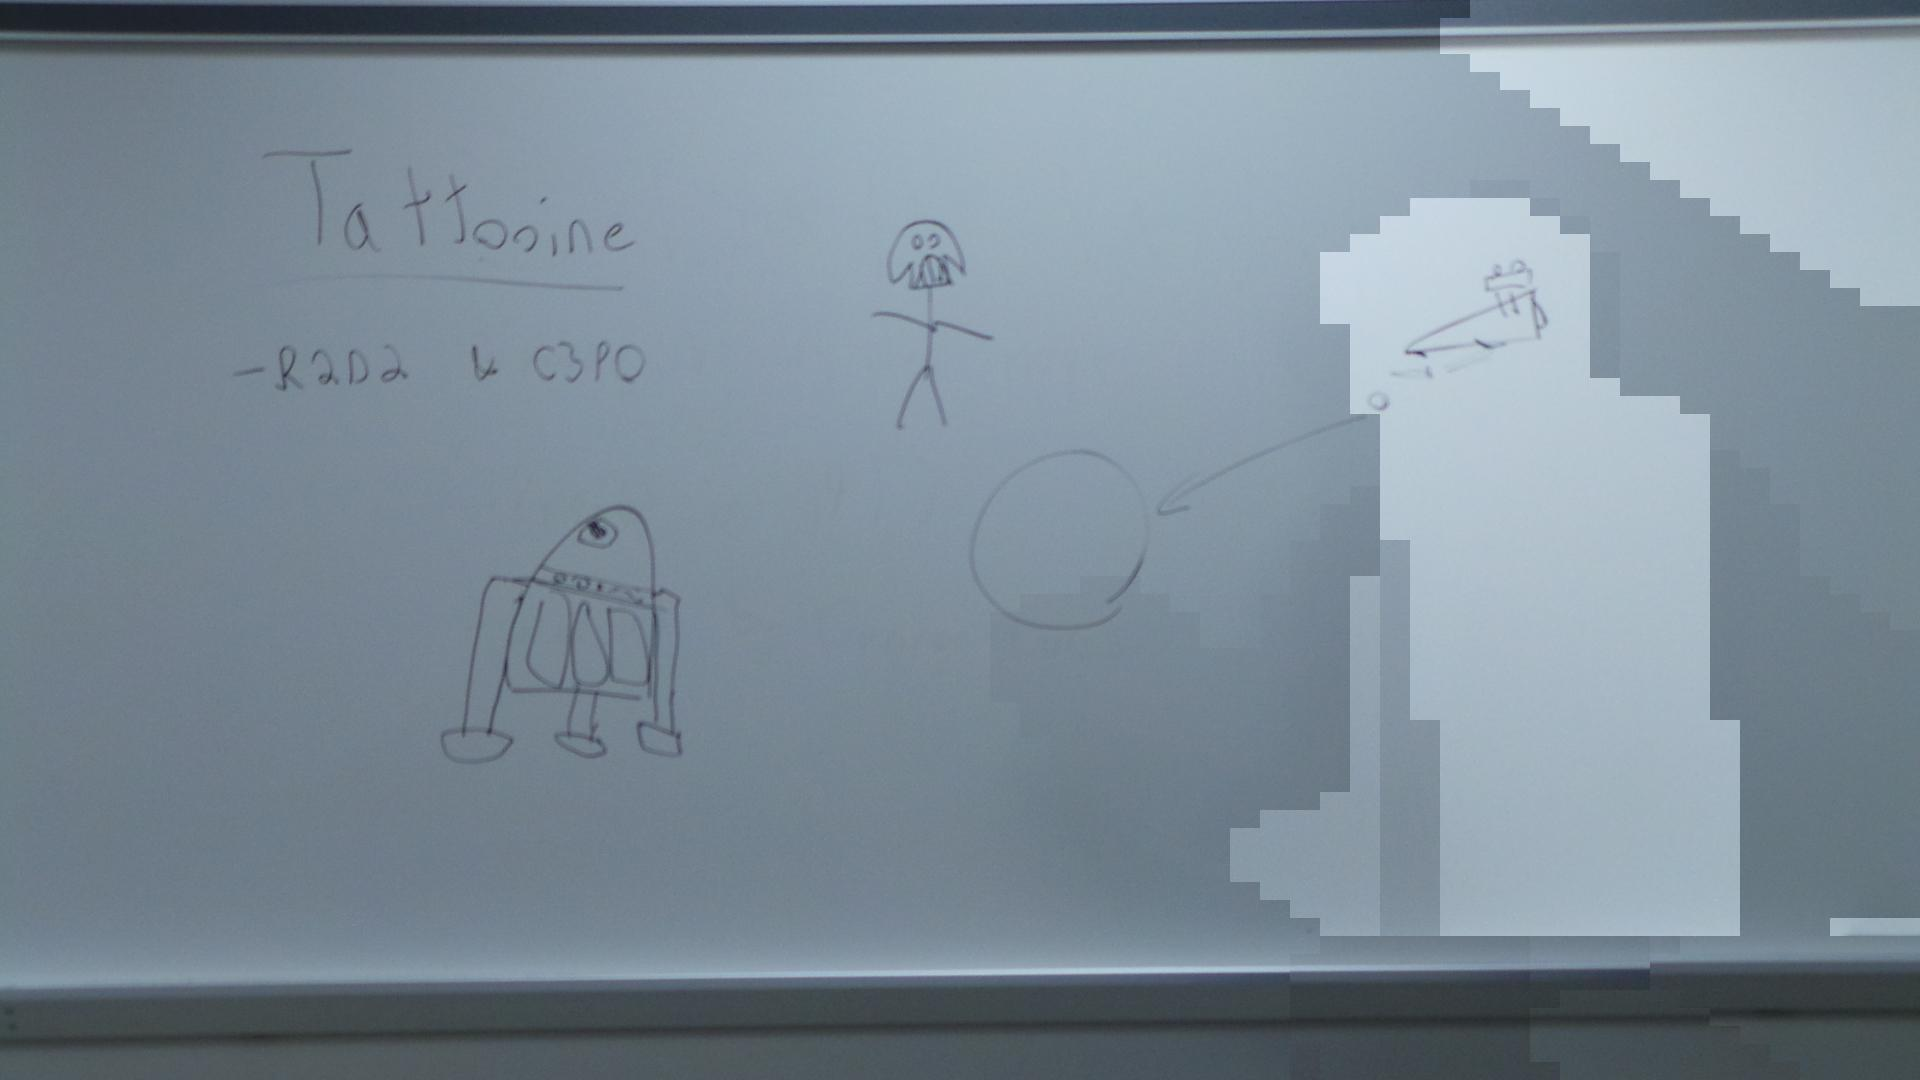 Tattooine
-R2D2 & C3PO